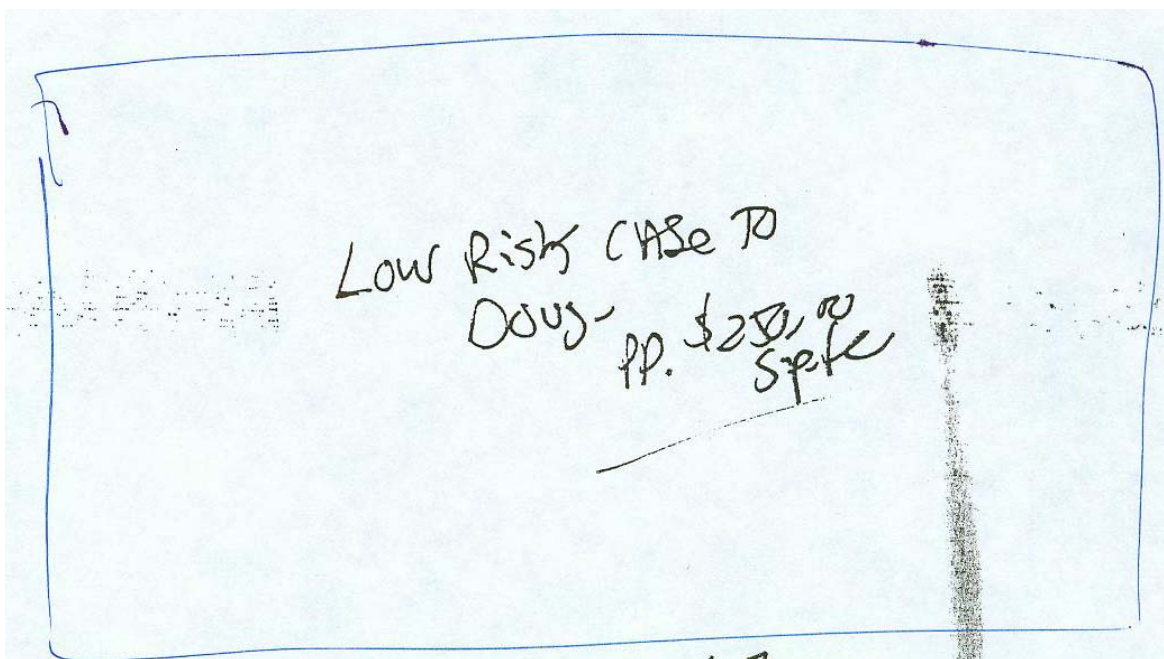 Low Risk CASe TO
Doug-
PP. $250.00